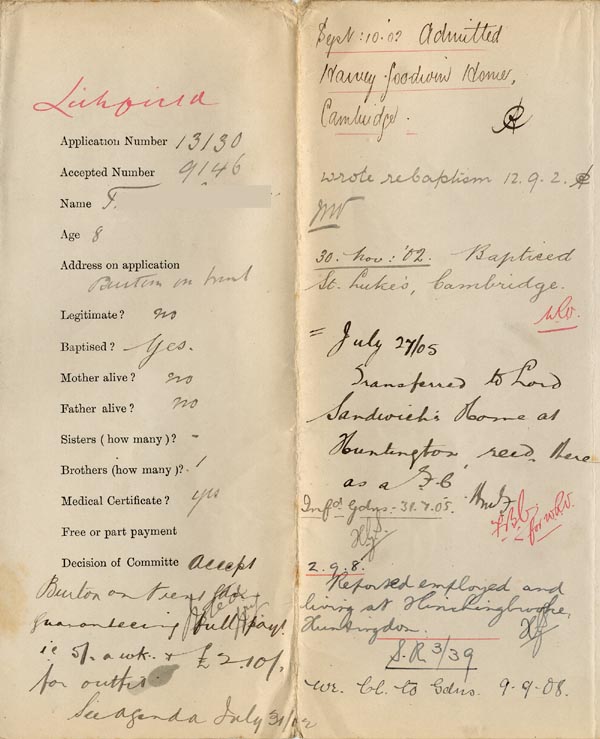 Lichfield
Application Number 13130
Accepted Number 9146
Name F.
Age 8
Address on application
Burton on Trent
Legitimate? no
Baptised? Yes.
Mother alive? no
Father alive? no
Sisters (how many)? -
Brothers (how many)? 1
Medical Certificate? yes
Free or part payment
Decision of Committe accept
Burton on Trent Gdns
guaranteeing full payt
ie 5/. a wk. + £2.10/.
for outfit
See agenda July 31/02
Sept: 10. 02 Admitted
Harvey Goodwin Home,
Cambridge.
wrote re baptism 12.9.2.
30. Nov: '02. Baptised
St. Luke's, Cambridge.
W.R.V.
= July 27/05
Transferred to Lord
Sandwich's Home at
Huntington recd. there
as a "F.C"
Infd. Gdns. - 31.7.05.
F.B.C.
for W.R.V.
2.9.8.
Reported employed and
living at Hinchingbrooke,
Huntingdon.
S.R. 3/39
Wr. Cl. to Gdns. 9-9-08.